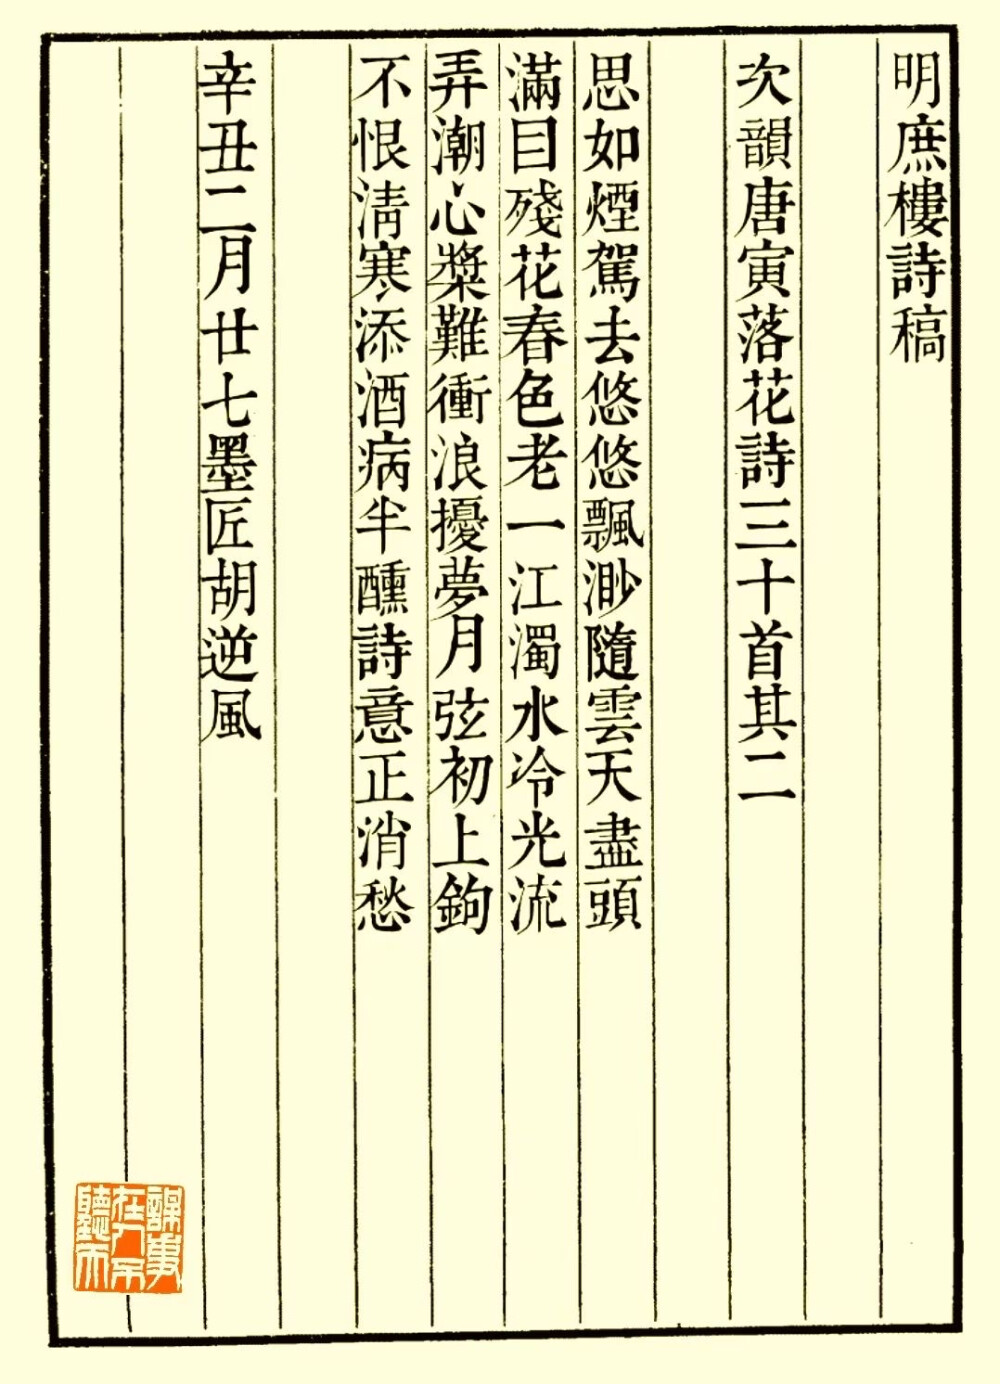 明庶樓詩稿
次韻唐寅落花詩三十首其二
思如煙駕去悠悠飄渺隨雲天盡頭
滿目殘花春色老一江濁水冷光流
弄潮心槳難衝浪擾夢月弦初上鉤
不恨淸寒添酒病半醺詩意正消愁
辛丑二月廿七墨匠胡逆風
謀事在人不聽天